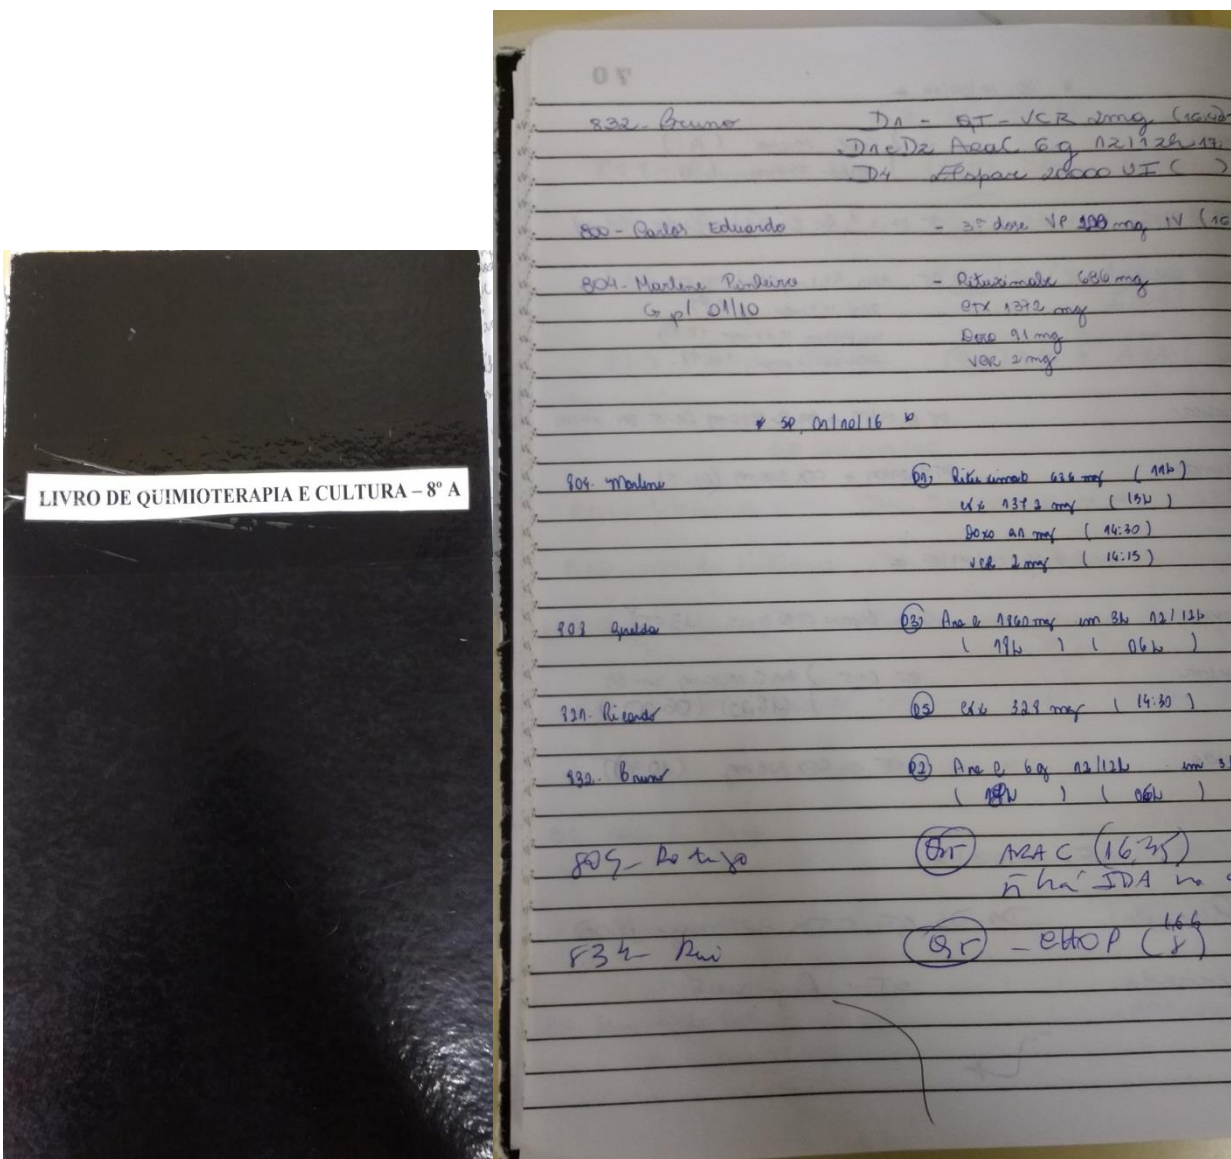 LIVRO DE QUIMIOTERAPIA E CULTURA – 8º A
70
832- Bruno D1 - QT - VCR 2mg
D1 e D2 AraC 6g 12/12h 17
D4 Elspar 20000 UI ( )
800 - Carlos Eduardo - 3ª dose VP mg IV
804- Marlene Pinheiro - Rituximabe 686 mg
p/ 01/10 CTX 1372 mg
Doxo 91 mg
VCR 2 mg
01/10/16
804- Marlene D1, Rituximab 686 mg (11h)
ctx 1372 mg (15h)
Doxo 91 mg (14:30)
VCR 2 mg (14:15)
D3, Ara C 1860 mg em 3h 12/12h
( 18h ) ( 06h )
821- Ricardo D5 ctx 328 mg ( 14:30 )
832- Bruno D2 Ara C 6g 12/12h em 3
( 18h ) ( 06h )
QT ARA C (16:35)
ñ há IDA
834- Rui QT - CHOP